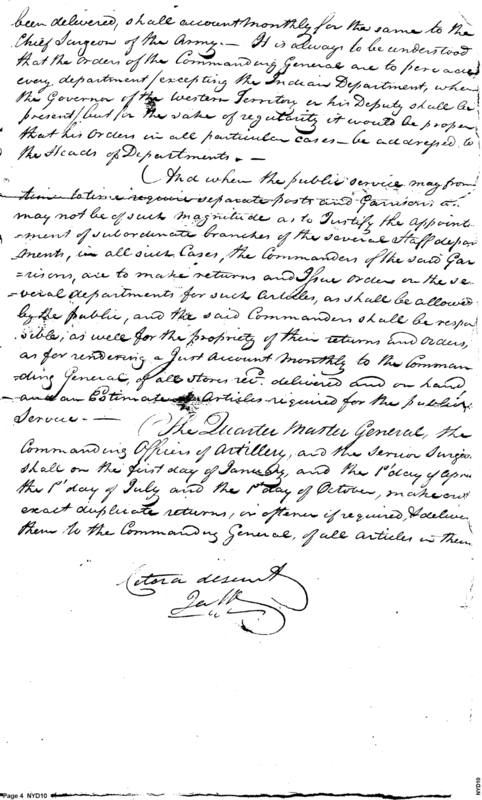 been delivered, shall account monthly for the same to the
Chief Surgeon of the Army.— It is always to be understood
that the orders of the Commanding General are to pervade
every department / excepting the Indian Department, when
the Governor of the Western Territory or his Deputy shall be
present / but for the sake of regularity it would be proper
that his orders in all particular cases— be addressed to
the Heads of Departments. —
And when the public service may from
time to time require separate posts and Garrisons
may not be of such magnitude as to Justify the appoint-
ment of subordinate branches of the several Staff depart
ments, in all such Cases, the Commanders of the said Gar
=risons, are to make returns and Issue orders on the se-
=veral departments for such Articles, as shall be allowed
by the public, and the said Commanders shall be respon
sible, as well for the propriety of their returns and orders,
as for rendering a Just Account Monthly to the Comman
ding General, of all stores recd. delivered and on hand,
and an Estimate Articles required for the public
Service. —
The Quarter Master General, the
Commanding Officers of Artillery, and the Senior Surgeon
shall on the first day of January, and the 1st day of April
the 1st day of July and the 1st day of October, make out
exact duplicate returns, or oftener if required, & deliver
them to the Commanding General, of all articles in their
Cetera desunt
Page 4 NYD10
NYD10